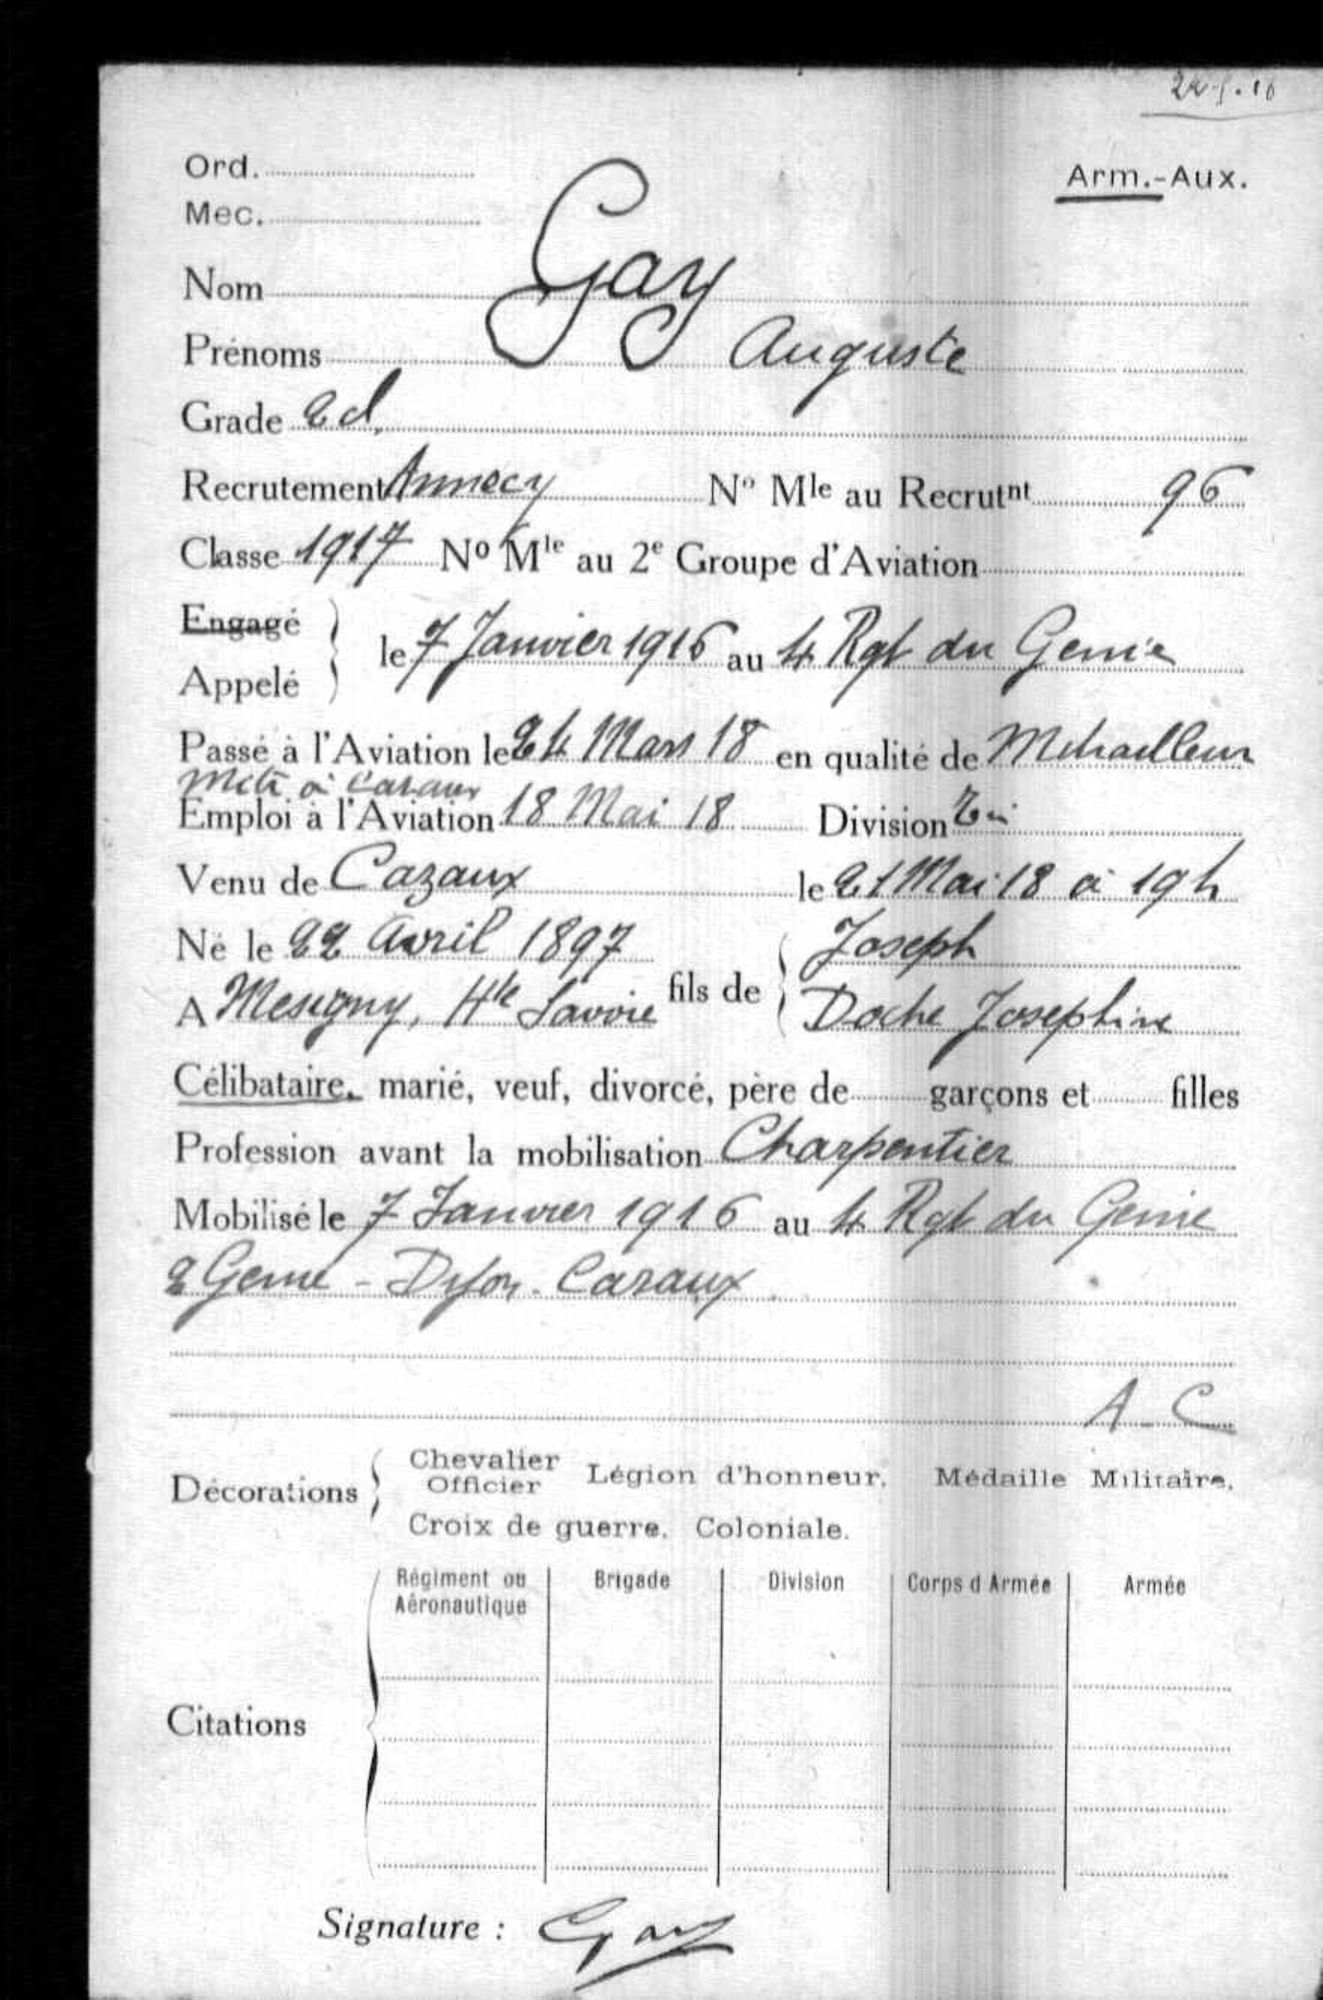 Ord.
Arm.-Aux.
Mec.
Nom Gay
Prénoms Auguste
Grade 2 cl.
Recrutement Annecy No Mle au Recrutnt 96
Classe 1917 No Mle au 2e Groupe d'Aviation
Engagé
Appelé } le 7 Janvier 1916 au 4 Rgt du Genie
Passé à l'Aviation le 24 Mars 18 en qualité de Mitrailleur
Mit à Cazaux
Emploi à l'Aviation 18 Mai 18 Division
Venu de Cazaux le 21 Mai 18 à 19h
Né le 22 Avril 1897 fils de { Joseph
A Mesigny, Hte Savoie Doche Josephine
Célibataire, marié, veuf, divorcé, père de garçons et filles
Profession avant la mobilisation Charpentier
Mobilisé le 7 Janvier 1916 au 4 Rgt du Genie
2 Genie - Dijon. Cazaux
A-C
Décorations } Chevalier
Officier Légion d'honneur. Médaille Militaire.
Croix de guerre. Coloniale.
Régiment ou Aéronautique Brigade Division Corps d'Armée Armée
Citations
Signature : Gay